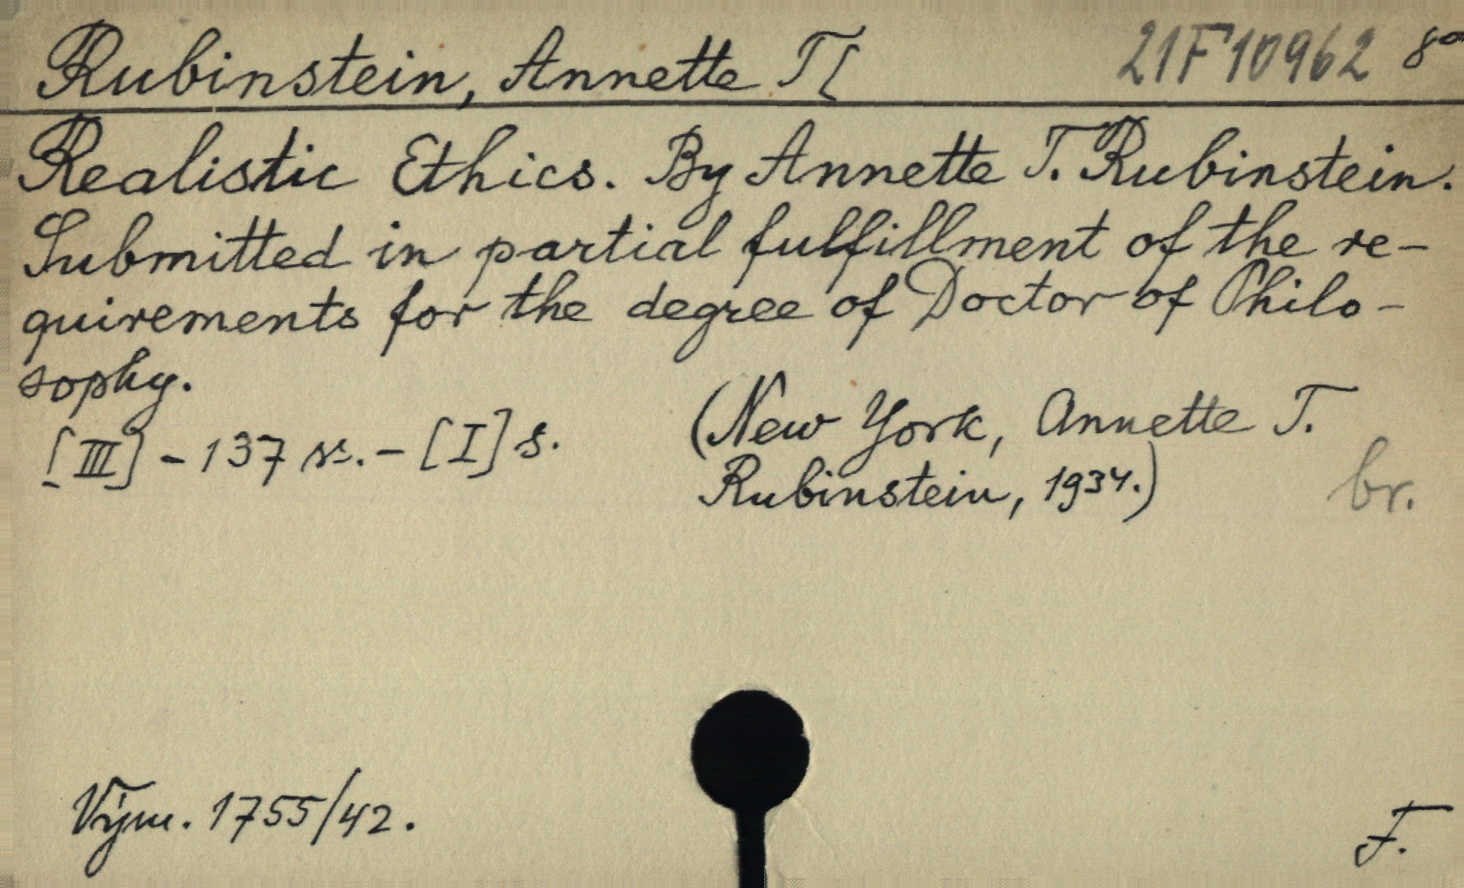 Rubinstein, Annette T[ 21F10962 8°
Realistic Ethics. By Annette T. Rubinstein.
Submitted in partial fulfillment of the re-
quirements for the degree of Doctor of Philo-
sophy.
(New York, Annette T.
[III] - 137 ss. - [I] s.
Rubinstein, 1934.) br.
Vým. 1755/42.
F.